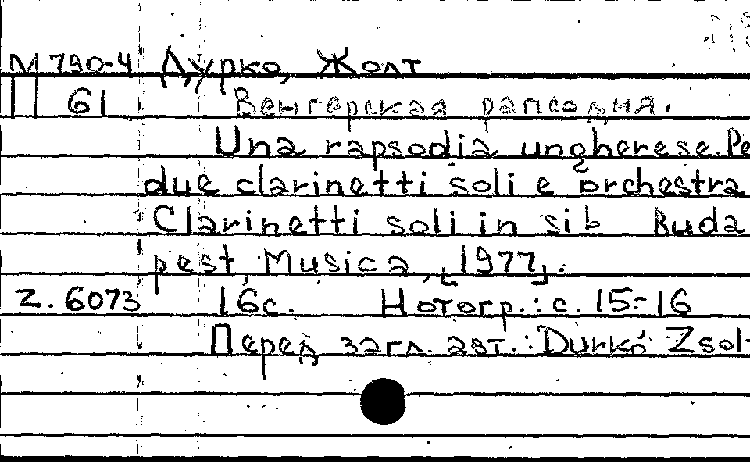 М 790-4 Дурко, Жолт
П 61 Венгерская рапсодия.
Una rapsodia ungherese. Pe
due clarinetti soli e orchestra
Clarinetti soli in sib Buda
pest, Musica, [1977].
Z. 6073 16с. Нотогр.: с. 15-16
Перед загл. авт.: Durkó Zsolt